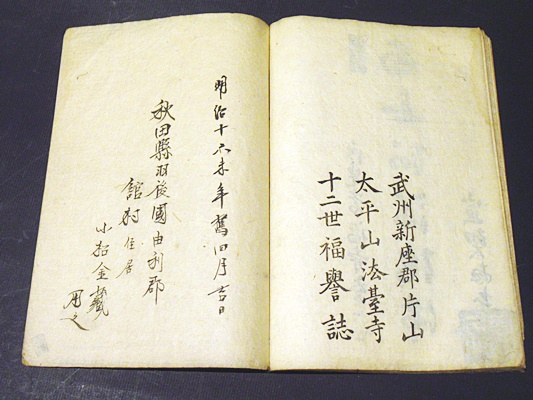 武州新座郡片山
太平山法臺寺
十二世福譽誌
明治十六未年舊四月吉日
秋田縣羽後國由利郡
舘村住居
小松金藏
用之